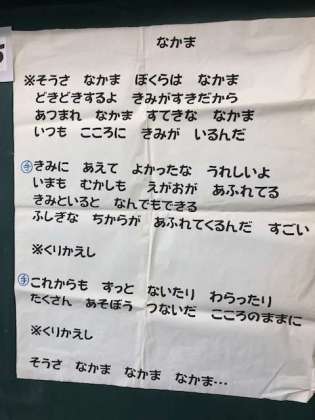 なかま
※そうさ なかま ぼくらは なかま
どきどきするよ きみがすきだから
あつまれ なかま すてきな なかま
いつも こころに きみが いるんだ
手 きみに あえて よかったな うれしいよ
いまも むかしも えがおが あふれてる
きみといると なんでもできる
ふしぎな ちからが あふれてくるんだ すごい
※くりかえし
手 これからも ずっと ないたり わらったり
たくさん あそぼう つないだ こころのままに
※くりかえし
そうさ なかま なかま なかま…